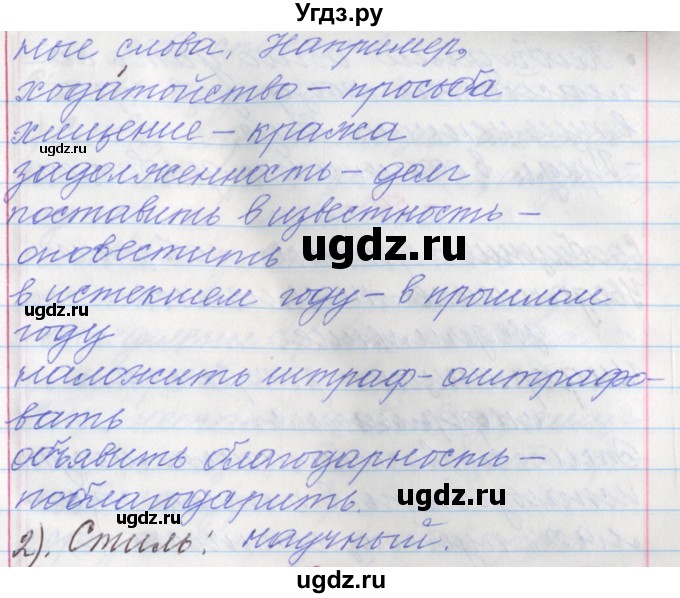 Угдз.ру
ные слова. Например,
ходатойство – просьба
хищение – кража
©ugdz.ru
задолженность – долг
поставить в известность –
оповестить
ugdz.ru
в истекшем году – в прошлом
©ugdz.ru
году
наложить штраф – оштрафо-
вать
объявить благодарность –
поблагодарить.
ugdz.ru
©ugdz.ru
2). Стиль: научный.
ugdz.ru